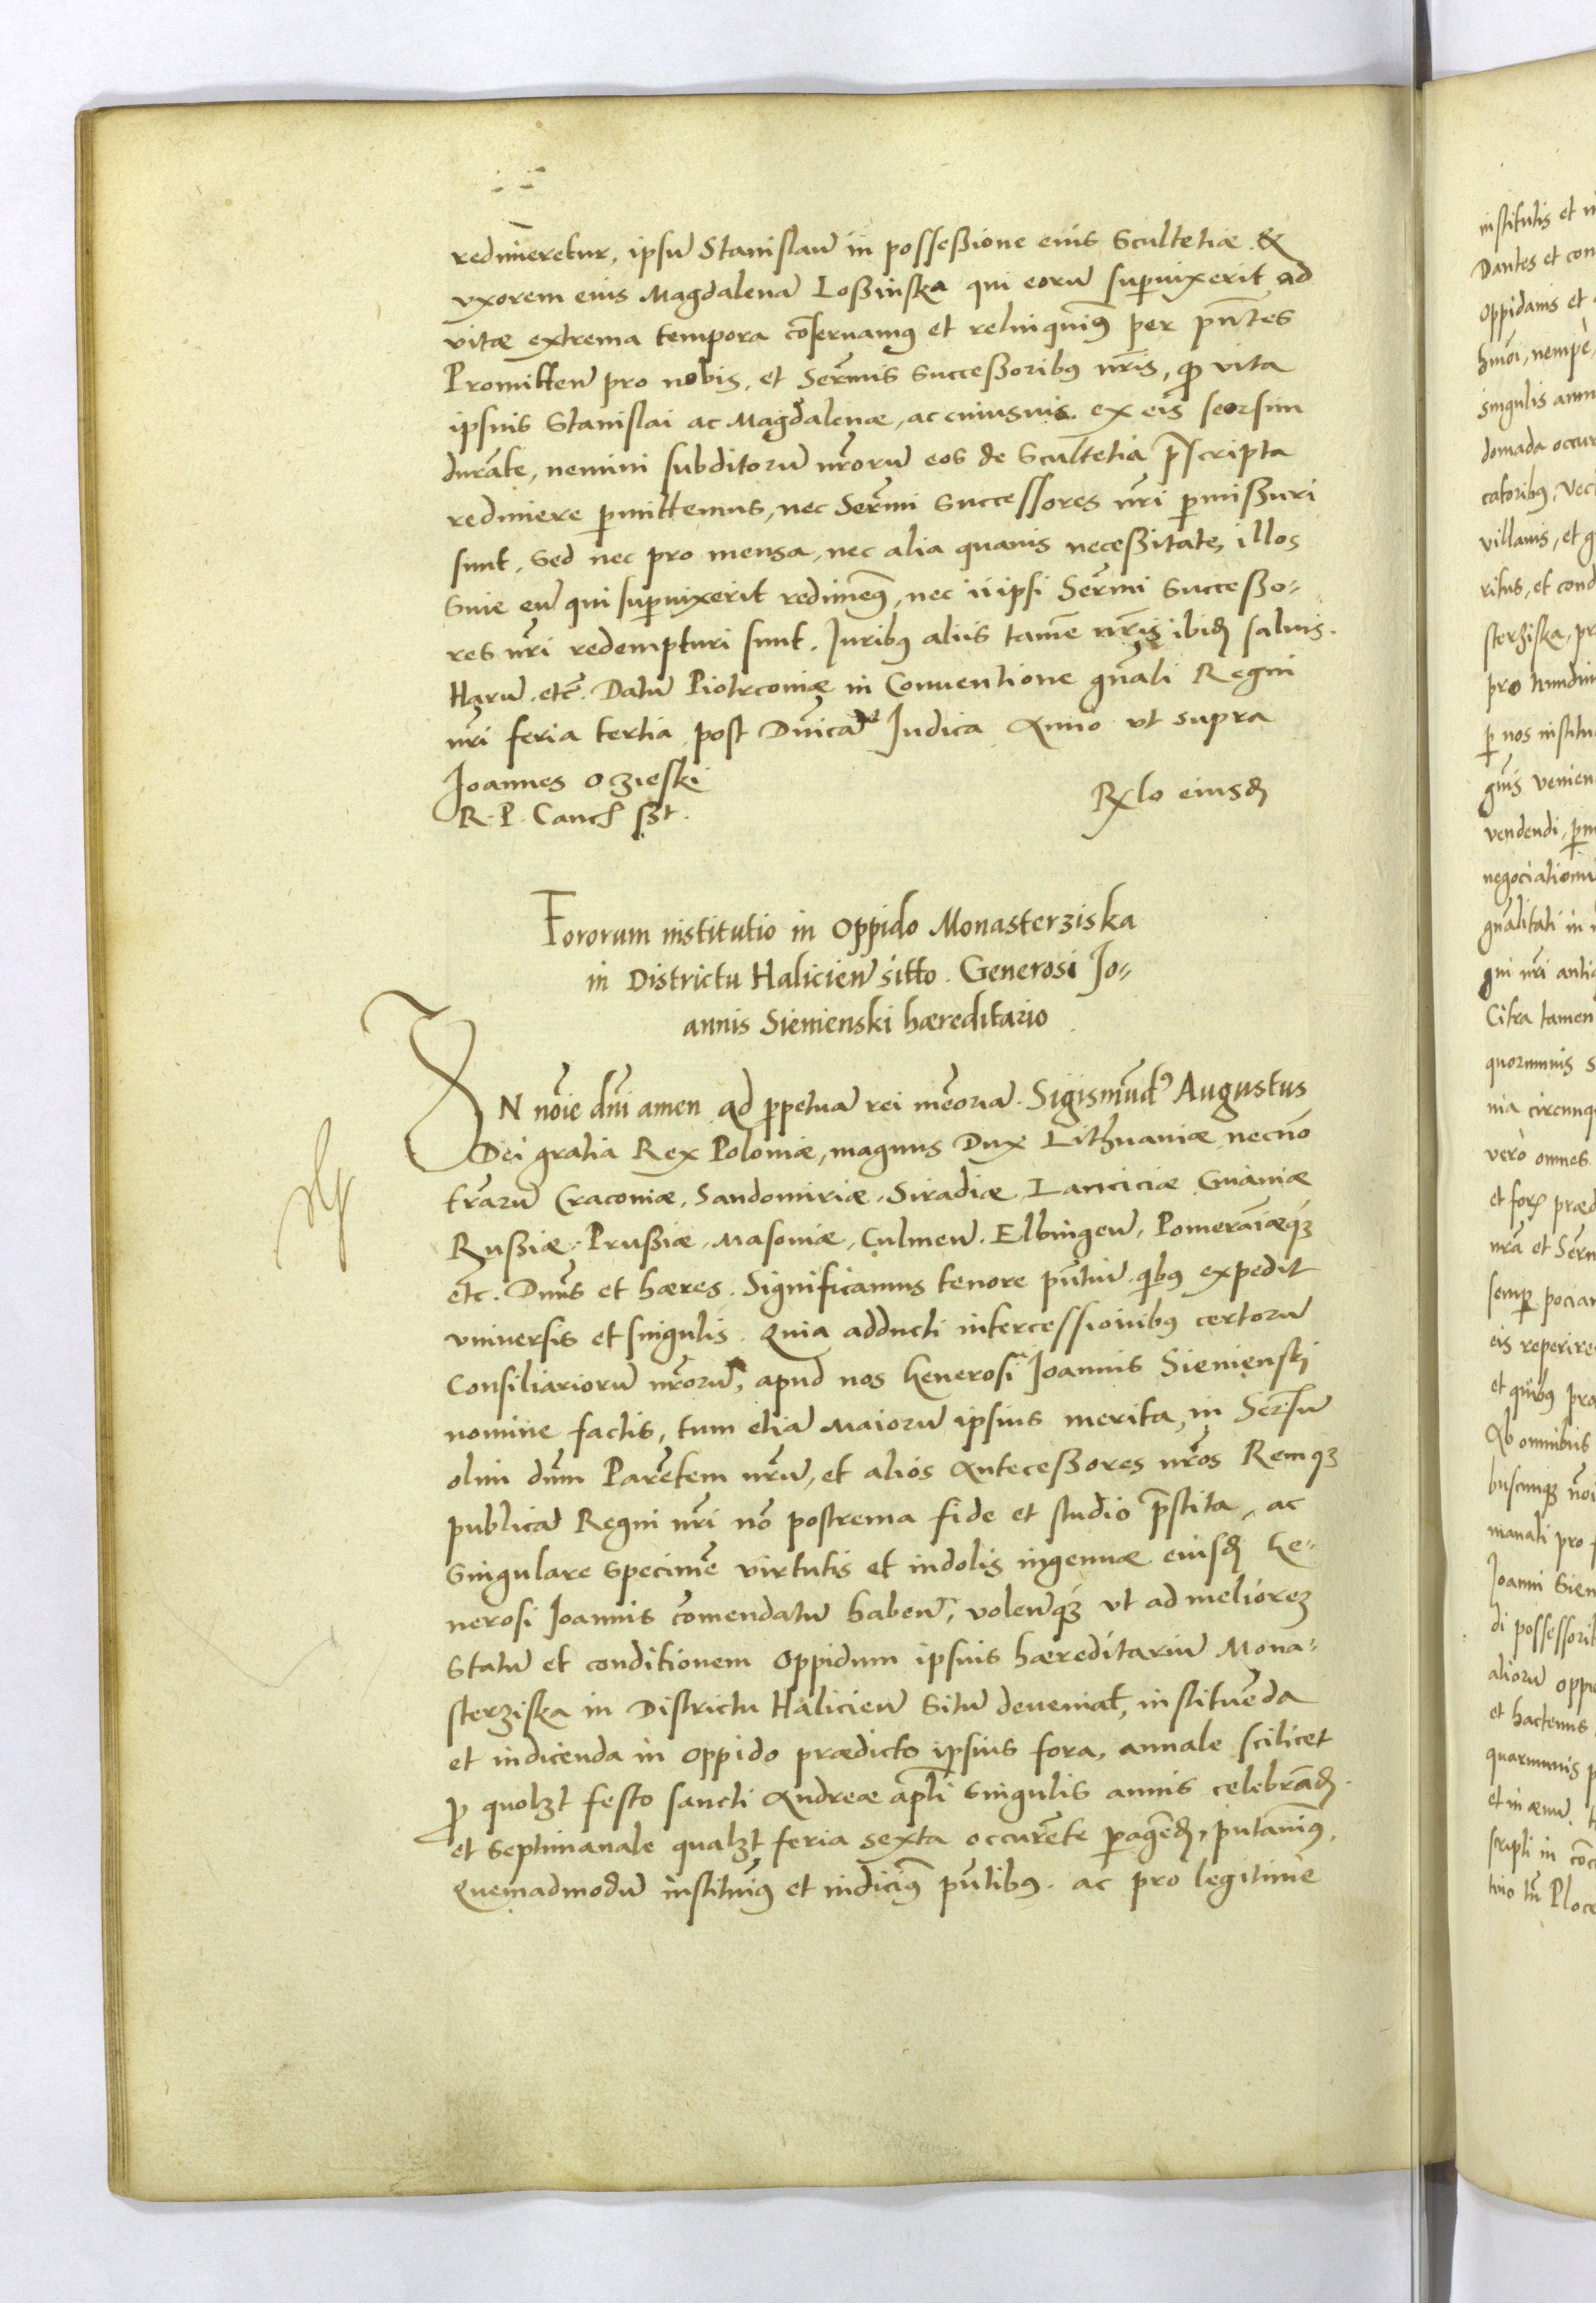 redimeretur, ipsū Stanislaū in possessione eius Scultetiæ &
vxorem eius Magdalenā Loßinska qui eorū superuixerit ad
vitæ extrema tempora cōseruamus et relinquim9 per pñtes
Promitteñ pro nobis, et Sermis Successoribus nr̃is, ꝙ vita
ipsius Stanislai ac Magdalenæ, ac cuiusuis ex eis seorsim
durāte, nemini subditorū nr̃orū eos de Scultetia p̄scripta
redimere permittemus, nec Sermi Successores nr̃i permißuri
sunt, Sed nec pro mensa, nec alia quauis neceßitate, illos
Siue eū qui superuixerit redimem9, nec ii ipsi Sermi Succeßo-
res nr̃i redempturi sunt. Iuribus aliis tamē nr̃is ibid saluis.
Harū. etc. Datū Piotrcouiæ in Conuentione gñali Regni
nr̃i feria tertia post Dnicā Iudica Anno vt supra
Joannes Oczieski
R. P. Canc ßt.
Rlo eiusd
Fororum institutio in Oppido Monasterziska
in Districtu Halicieñ sitto. Generosi Jo-
annis Sienienski hæreditario
IN noīe dñi amen ad perpetuā rei mēoriā. Sigismūd9 Augustus
Dei gratia Rex Poloniæ, magnus Dux Lithuaniæ necnō
trārū Cracouiæ, Sandomiriæ, Siradiæ, Lanciciæ Cuiauiæ
Rußiæ, Prußiæ, Masouiæ, Culmeñ. Elbingeñ, Pomeraniæq3
etc. Dnus et hæres. Significamus tenore pñtiū quibus expedit
vniuersis et singulis. Quia adducti intercessionibus certorū
Consiliariorū nr̃orū, apud nos Generosi Joannis Sienienski
nomine factis, tum etiā Maiorū ipsius merita, in Sermū
olim dnm Parētem nr̃ū, et alios Anteceßores nr̃os Remq3
publicā Regni nr̃i nō postrema fide et studio p̄stita, ac
Singulare Specimē virtutis et indolis ingenuæ eiusd Ge-
nerosi Joannis cōmendatū habeñ, volenq3 vt ad meliorez
Statū et conditionem Oppidum ipsius hæreditariū Mona-
sterziska in Districtu Halicieñ Sitū deueniat, instituēda
et indicenda in Oppido prædicto ipsius fora, annale scilicet
ꝓ quol3t festo sancti Andreæ apli Singulis annis celebrād.
et Septimanale qual3t feria sexta occurēte peragēd, putauim9,
Quemadmodū instituim9 et indicim9 pñtibus. ac pro legitime
institutis et
Dantes et con
Oppidanis et
hmōi, nempe,
singulis ann
domada occur
catoribus, Vec
villanis, et
ritus, et cond
sterziska, pr
pro nundin
p nos institu
vendendi,
negociationu
gñalitati in
gni nr̃i anti
Citra tamen
quorumuis s
nia circunq
vero omnes
nr̃a et Serm
semp pocian
eis reperire
et quibus pra
Ab omnibus
manali pro
Joanni Sien
di possessori
aliorū oppi
et hactenus
quarumuis p
et in æuū.